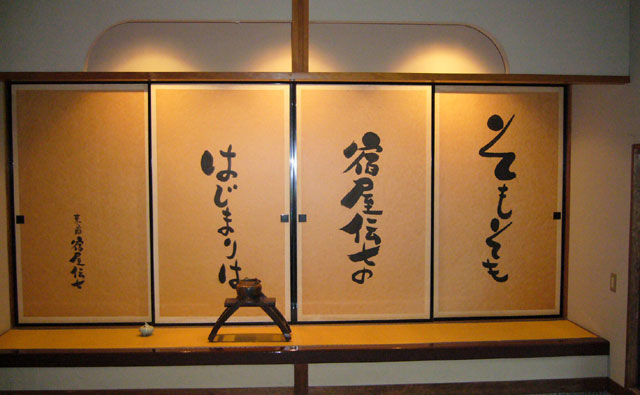 そもそも
宿屋伝七の
はじまりは
宿屋伝七